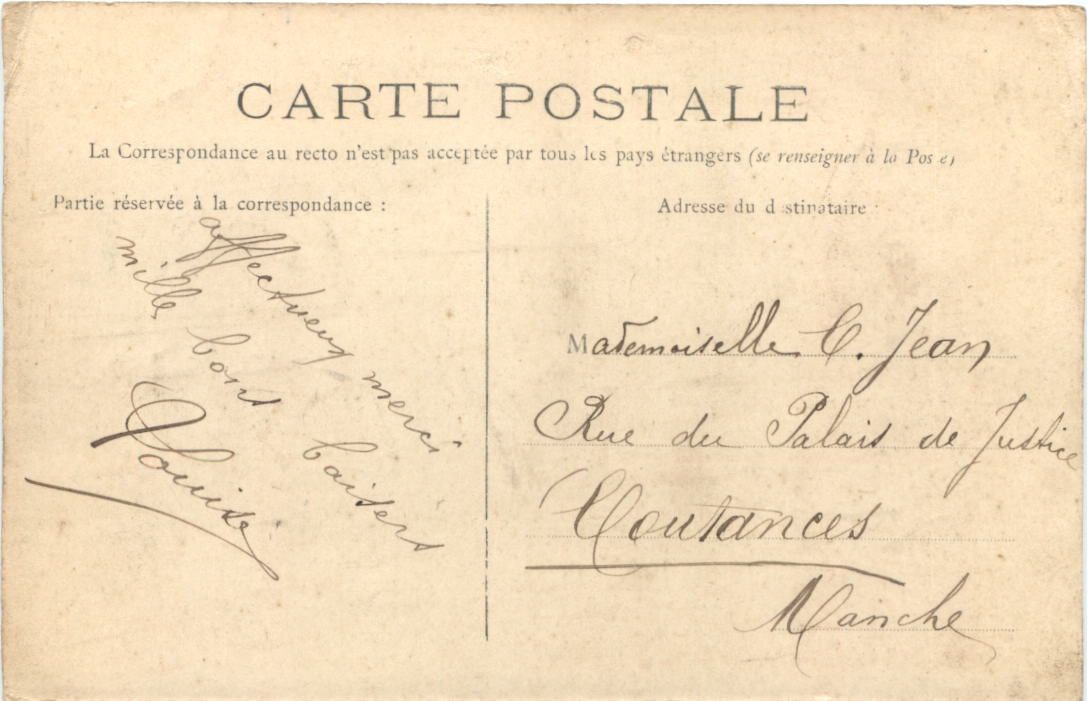 CARTE POSTALE
La Correspondance au recto n'est pas acceptée par tous les pays étrangers (se renseigner à la Poste)
Partie réservée à la correspondance :
affectueux merci
mille bons baisers
Louise
Adresse du destinataire
Mademoiselle C. Jean
Rue du Palais de Justice
Coutances
Manche